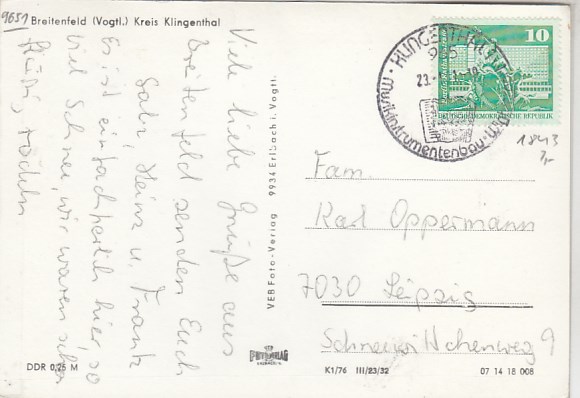 9651
Breitenfeld (Vogtl.) Kreis Klingenthal
Viele liebe Grüße aus
Breitenfeld senden Euch
Gabi, Heinz u. Frank
Es ist einfach herrlich hier, so
viel Schnee, wir waren schon
rodeln
VEB Foto-Verlag 9934 Erlbach i. Vogtl.
KLINGENTHAL
965
23.
Musikinstrumentenbau
10
DEUTSCHE DEMOKRATISCHE REPUBLIK
1843
Fam.
Karl Oppermann
7030 Leipzig
Schneewittchenweg 9
DDR 0,25 M
K1/76 III/23/32
07 14 18 008